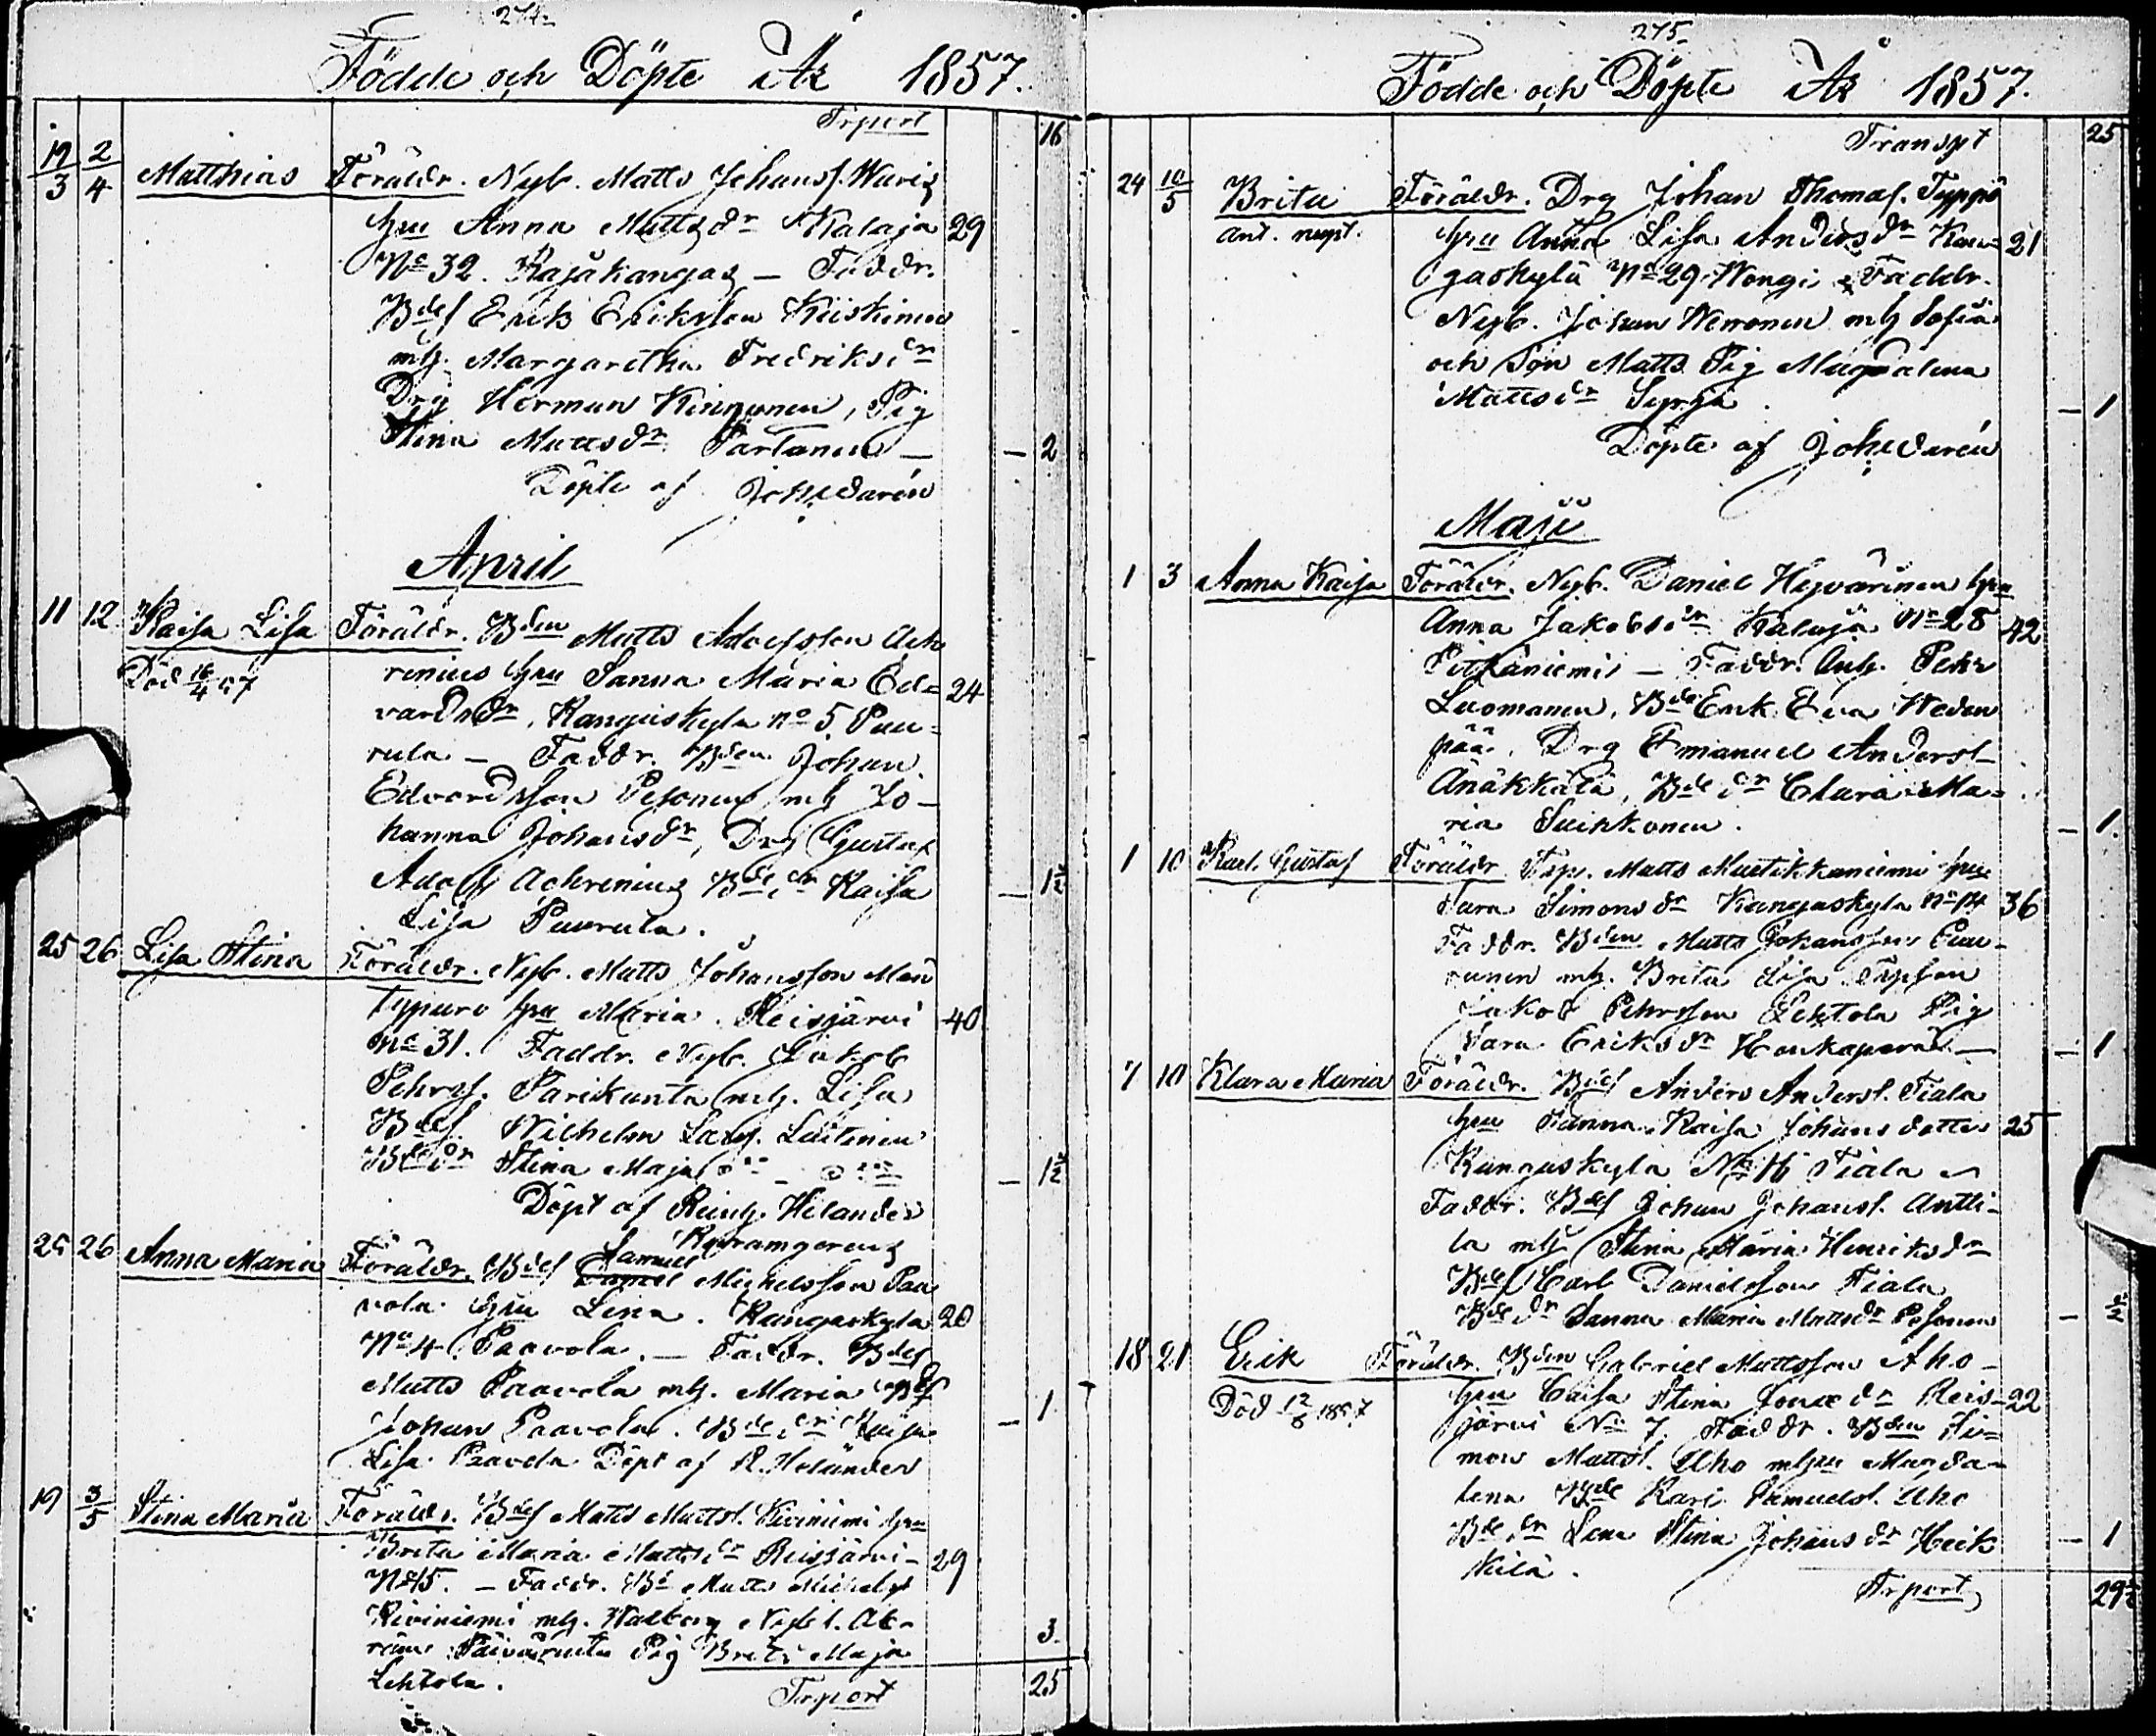 274.
Födde och Döpte År 1857.
Trport 16
19/3 2/4 Matthias Föräldr. Nyb. Matts Johanss. Waris
hu Anna Mattsdr Kalaja 29
No 32. Kajåkangas — Faddr.
Bdes Erik Eriksson Kiiskinen
mh. Margaretha Fredriksdr
Drg Herman Kinnunen, Pig
Stina Mattsdr Partanen — — 2
Döpte af Joh. Edarén
April
11 12 Kaisa Lisa Föräldr. Bden Matts Adolfsson Ach
Död 16/4 57 renius hu Sanna Maria Ed= 24
vardsdr, Kangaskyla No 5 Puu=
rula — Faddr. Bden Johan
Edvardsson Pesonen mh Jo-
hanna Johansdr, Drg Gustaf
Adolf Achrenius Bdedr Kaisa — 1½
Lisa Puurula.
25 26 Lisa Stina Föräldr. Nyb. Matts Johansson Män
typuro hu Maria. Reisjärvi 40
No 31. Faddr. Nyb. Jakob
Pehrss. Parikanta mh. Lisa
Bdes. Wilhelm Lars. Luttinen
Bdedr Stina Maja — 1½
Döpt af Reinh. Helander
Kyrramgerens
25 26 Anna Maria Föräldr. Bdes Samuel Michelsson Paa
vola hu Lena. Kangaskyla 20
No 4 Paavola. — Faddr. Bdes
Matts Paavola mh. Maria Bds
Johan Paavola. Bdedr Kaisa — 1
Lisa Paavola Döpt af R. Helander
19 3/5 Stina Maria Föräldr. Bdes Matts Mattss. Kiviniemi hu
Brita Maria Mattsdr Reisjärvi- 29
No 15. — Faddr. Bd Matts Michelss
Kiviniemi mh. Walborg Nybs. Ab-
ram Päiväranta Pig Brita Maja 3.
Lehtola. Trport 25
275.
Födde och Döpte År 1857.
Transpt 25
24 10/5 Brita Föräldr. Drg Johan Thomas. Typpö
ant. nupt. hu Anna Lisa Andersdr Kan= 21
gaskylä No 29 Wongi Faddr.
Nyb. Johan Weronen mh Sofia
och Son Matts Pig Magdalena
Mattsdr Syrjä. — 1
Döpte af Joh. Edarén
Maji
1 3 Anna Kaisa Föräldr. Nyb. Daniel Hyvärinen hu
Anna Jakobsdr Kalaja No 28 42
Pitkäniemi — Faddr. Anh. Pehr
Luomanen, Bde Erik Eva Weden
pää. Drg Emanuel Anderss
Änäkkälä, Bdedr Clara Ma=
ria Suikkonen. — 1.
1 10 Karl Gustaf Föräldr. Trp. Matts Mustikkaniemi hu
Sara Simonsdr Kangaskyla No 14 36
Faddr. Bden Matts Johansson Puu-
runen mh. Brita Lisa Trpson
Jakob Pehrsson Lehtola Pig
Sara Eriksdr Honkaperä — — 1
7 10 Klara Maria Föräldr. Bdes Anders Anderss. Tiala
hu Sanna Kaisa Johans dotter 25
Kangaskyla No 16 Tiala
Faddr. Bdes Johan Johanss. Antti-
la mh Stina Maria Henriksdr
Bdes Carl Danielsson Tiala
Bdedr Sanna Maria Mattsdr Pesonen — ½
18 21 Erik Föräldr. Bden Gabriel Mattsson Aho-
Död 12/8 1857 hu Caisa Stina Jonaedr Reis- 22
järvi No 7. Faddr. Bden Si=
mon Mattss. Aho mhu Magda-
lena Bde Karl Samuelss. Aho
Bdedr Lena Stina Johansdr Heik — 1
kilä.
Trport 29½